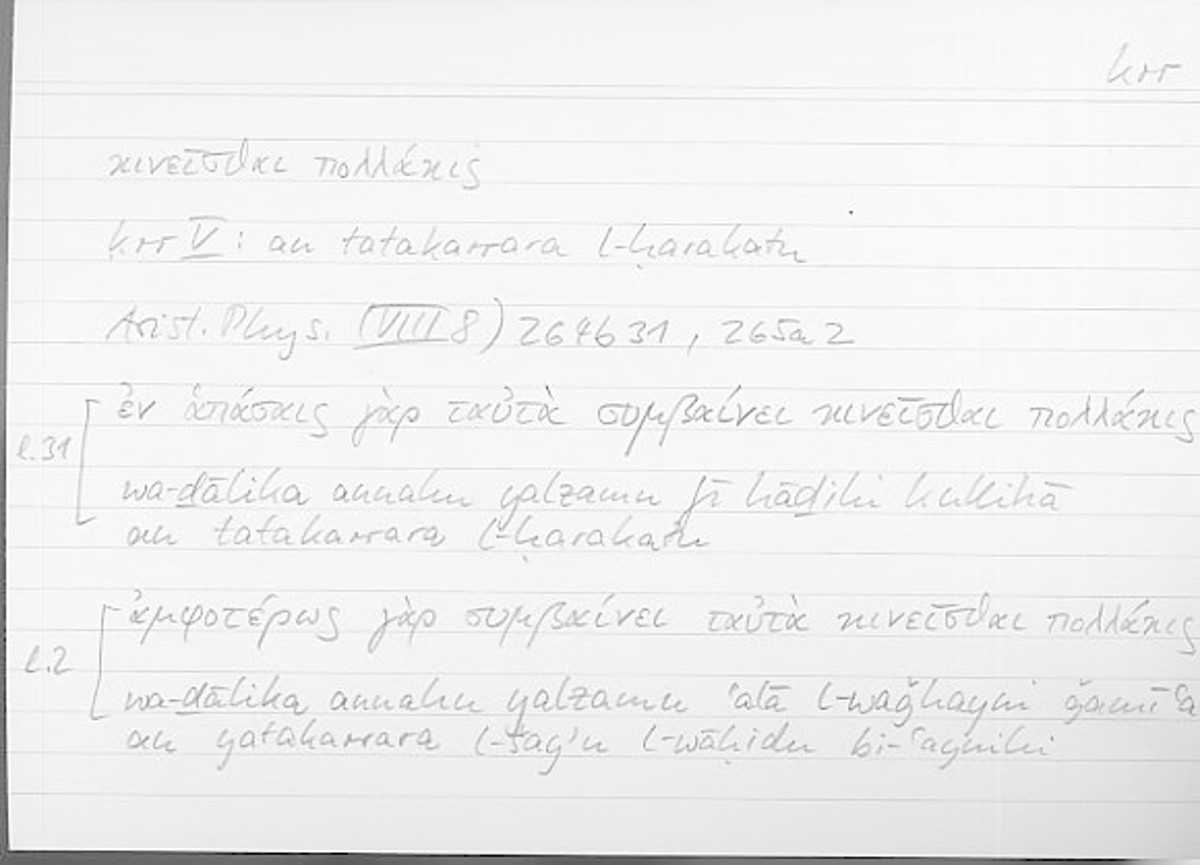 krr
κινεῖσθαι πολλάκις
krr V : an tatakarrara l-ḥarakatu
Arist. Phys. (VIII 8) 264b31, 265a2
ἐν ἁπάσαις γὰρ ταὐτὰ συμβαίνει κινεῖσθαι πολλάκις
l.31
wa-ḏālika annahu yalzamu fī hāḏihi kullihā
an tatakarrara l-ḥarakatu
ἀμφοτέρως γὰρ συμβαίνει ταὐτὰ κινεῖσθαι πολλάκις
l.2
wa-ḏālika annahu yalzamu ʿalā l-waǧhayni ǧamīʿa
an yatakarrara l-šayʾu l-wāḥidu bi-ʿaynihi